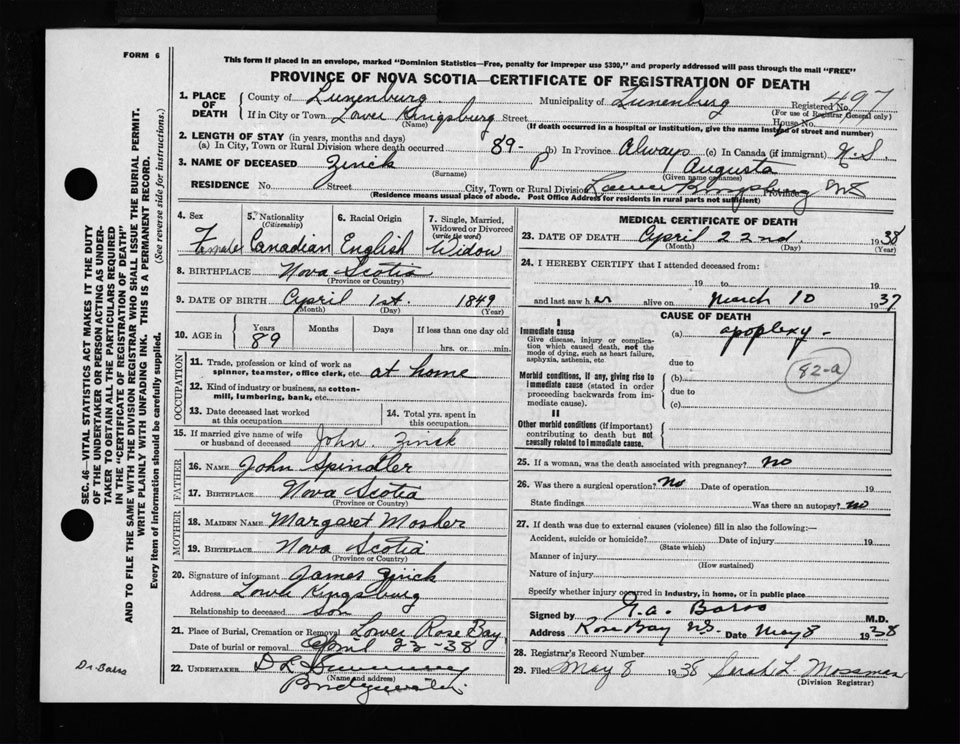 FORM 6
This form if placed in an envelope, marked "Dominion Statistics—Free, penalty for improper use $300," and properly addressed will pass through the mail "FREE"
PROVINCE OF NOVA SCOTIA—CERTIFICATE OF REGISTRATION OF DEATH
1. PLACE OF DEATH
County of Lunenburg Municipality of Lunenburg Registered No. 497
(For use of Registrar General only)
If in City or Town Lower Kingsburg Street House No.
(Name) (If death occurred in a hospital or institution, give the name instead of street and number)
2. LENGTH OF STAY (in years, months and days)
(a) In City, Town or Rural Division where death occurred 89- (b) In Province Always (c) In Canada (if immigrant) N.S.
3. NAME OF DECEASED Zinck Augusta
(Surname) (Given name or names)
RESIDENCE No. Street City, Town or Rural Division Lower Kingsburg NS
(Residence means usual place of abode. Post Office Address for residents in rural parts not sufficient)
4. Sex Female
5. Nationality (Citizenship) Canadian
6. Racial Origin English
7. Single, Married, Widowed or Divorced (write the word) Widow
8. BIRTHPLACE Nova Scotia
(Province or Country)
9. DATE OF BIRTH April 1st. 1849
(Month) (Day) (Year)
10. AGE in Years 89 Months Days If less than one day old
hrs. or min.
OCCUPATION
11. Trade, profession or kind of work as spinner, teamster, office clerk, etc. at home
12. Kind of industry or business, as cotton-mill, lumbering, bank, etc.
13. Date deceased last worked at this occupation
14. Total yrs. spent in this occupation
15. If married give name of wife or husband of deceased John. Zinck
FATHER
16. NAME John Spindler
17. BIRTHPLACE Nova Scotia
(Province or Country)
MOTHER
18. MAIDEN NAME Margaret Mosher
19. BIRTHPLACE Nova Scotia
(Province or Country)
20. Signature of informant James Zinck
Address Lower Kingsburg
Relationship to deceased son
21. Place of Burial, Cremation or Removal Lower Rose Bay
Date of burial or removal April 23-38
22. UNDERTAKER D L
(Name and address)
Bridgewater
MEDICAL CERTIFICATE OF DEATH
23. DATE OF DEATH April 22nd. 1938
(Month) (Day) (Year)
24. I HEREBY CERTIFY that I attended deceased from:
19 to 19
and last saw her alive on March 10 1937
CAUSE OF DEATH
I
Immediate cause (a) apoplexy -
Give disease, injury or complication which caused death, not the mode of dying, such as heart failure, asphyxia, asthenia, etc
due to
82-a
Morbid conditions, if any, giving rise to immediate cause (stated in order proceeding backwards from immediate cause).
(b)
due to
(c)
II
Other morbid conditions (if important) contributing to death but not causally related to immediate cause.
25. If a woman, was the death associated with pregnancy? no
26. Was there a surgical operation? No Date of operation 19
State findings Was there an autopsy? no
27. If death was due to external causes (violence) fill in also the following:—
Accident, suicide or homicide? Date of injury 19
(State which)
Manner of injury
(How sustained)
Nature of injury
Specify whether injury occurred in industry, in home, or in public place
Signed by G.A. Barss M.D.
Address Rose Bay N.S. Date May 8 1938
28. Registrar's Record Number
29. Filed May 8 1938 Sarah L Mossman
(Division Registrar)
SEC. 46—VITAL STATISTICS ACT MAKES IT THE DUTY
OF THE UNDERTAKER OR PERSON ACTING AS UNDER-
TAKER TO OBTAIN ALL THE PARTICULARS REQUIRED
IN THE "CERTIFICATE OF REGISTRATION OF DEATH"
AND TO FILE THE SAME WITH THE DIVISION REGISTRAR WHO SHALL ISSUE THE BURIAL PERMIT.
WRITE PLAINLY WITH UNFADING INK. THIS IS A PERMANENT RECORD.
Every item of information should be carefully supplied. (See reverse side for instructions.)
Dr Barss